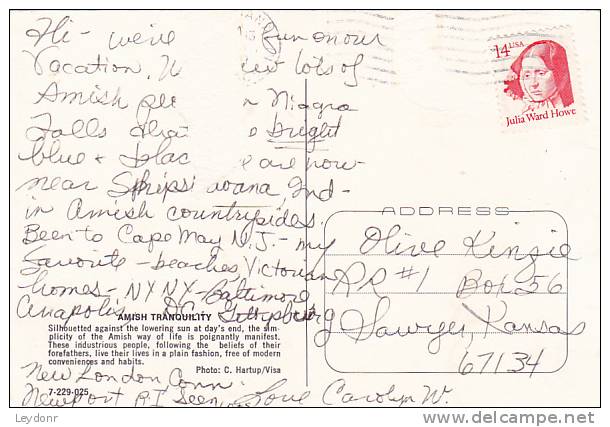 Hi - we've fun on our
Vacation, lots of
Amish Niagra
Falls bright
blue & are now
near Ind -
in Amish countrysides.
Been to Cape May N.J. - my
favorite - beaches, Victorian
homes - NY NY - Baltimore
Anapolis
New London Conn.
Newport R.I. Seen, Love Carolyn W.
14 USA
Julia Ward Howe
ADDRESS
Olive Kinzie
RR #1 Box 56
Sawyer, Kansas
67134
AMISH TRANQUILITY
Silhouetted against the lowering sun at day's end, the sim-
plicity of the Amish way of life is poignantly manifest.
These industrious people, following the beliefs of their
forefathers, live their lives in a plain fashion, free of modern
conveniences and habits.
Photo: C. Hartup/Visa
7-229-025
Leydonr
delcampe.net